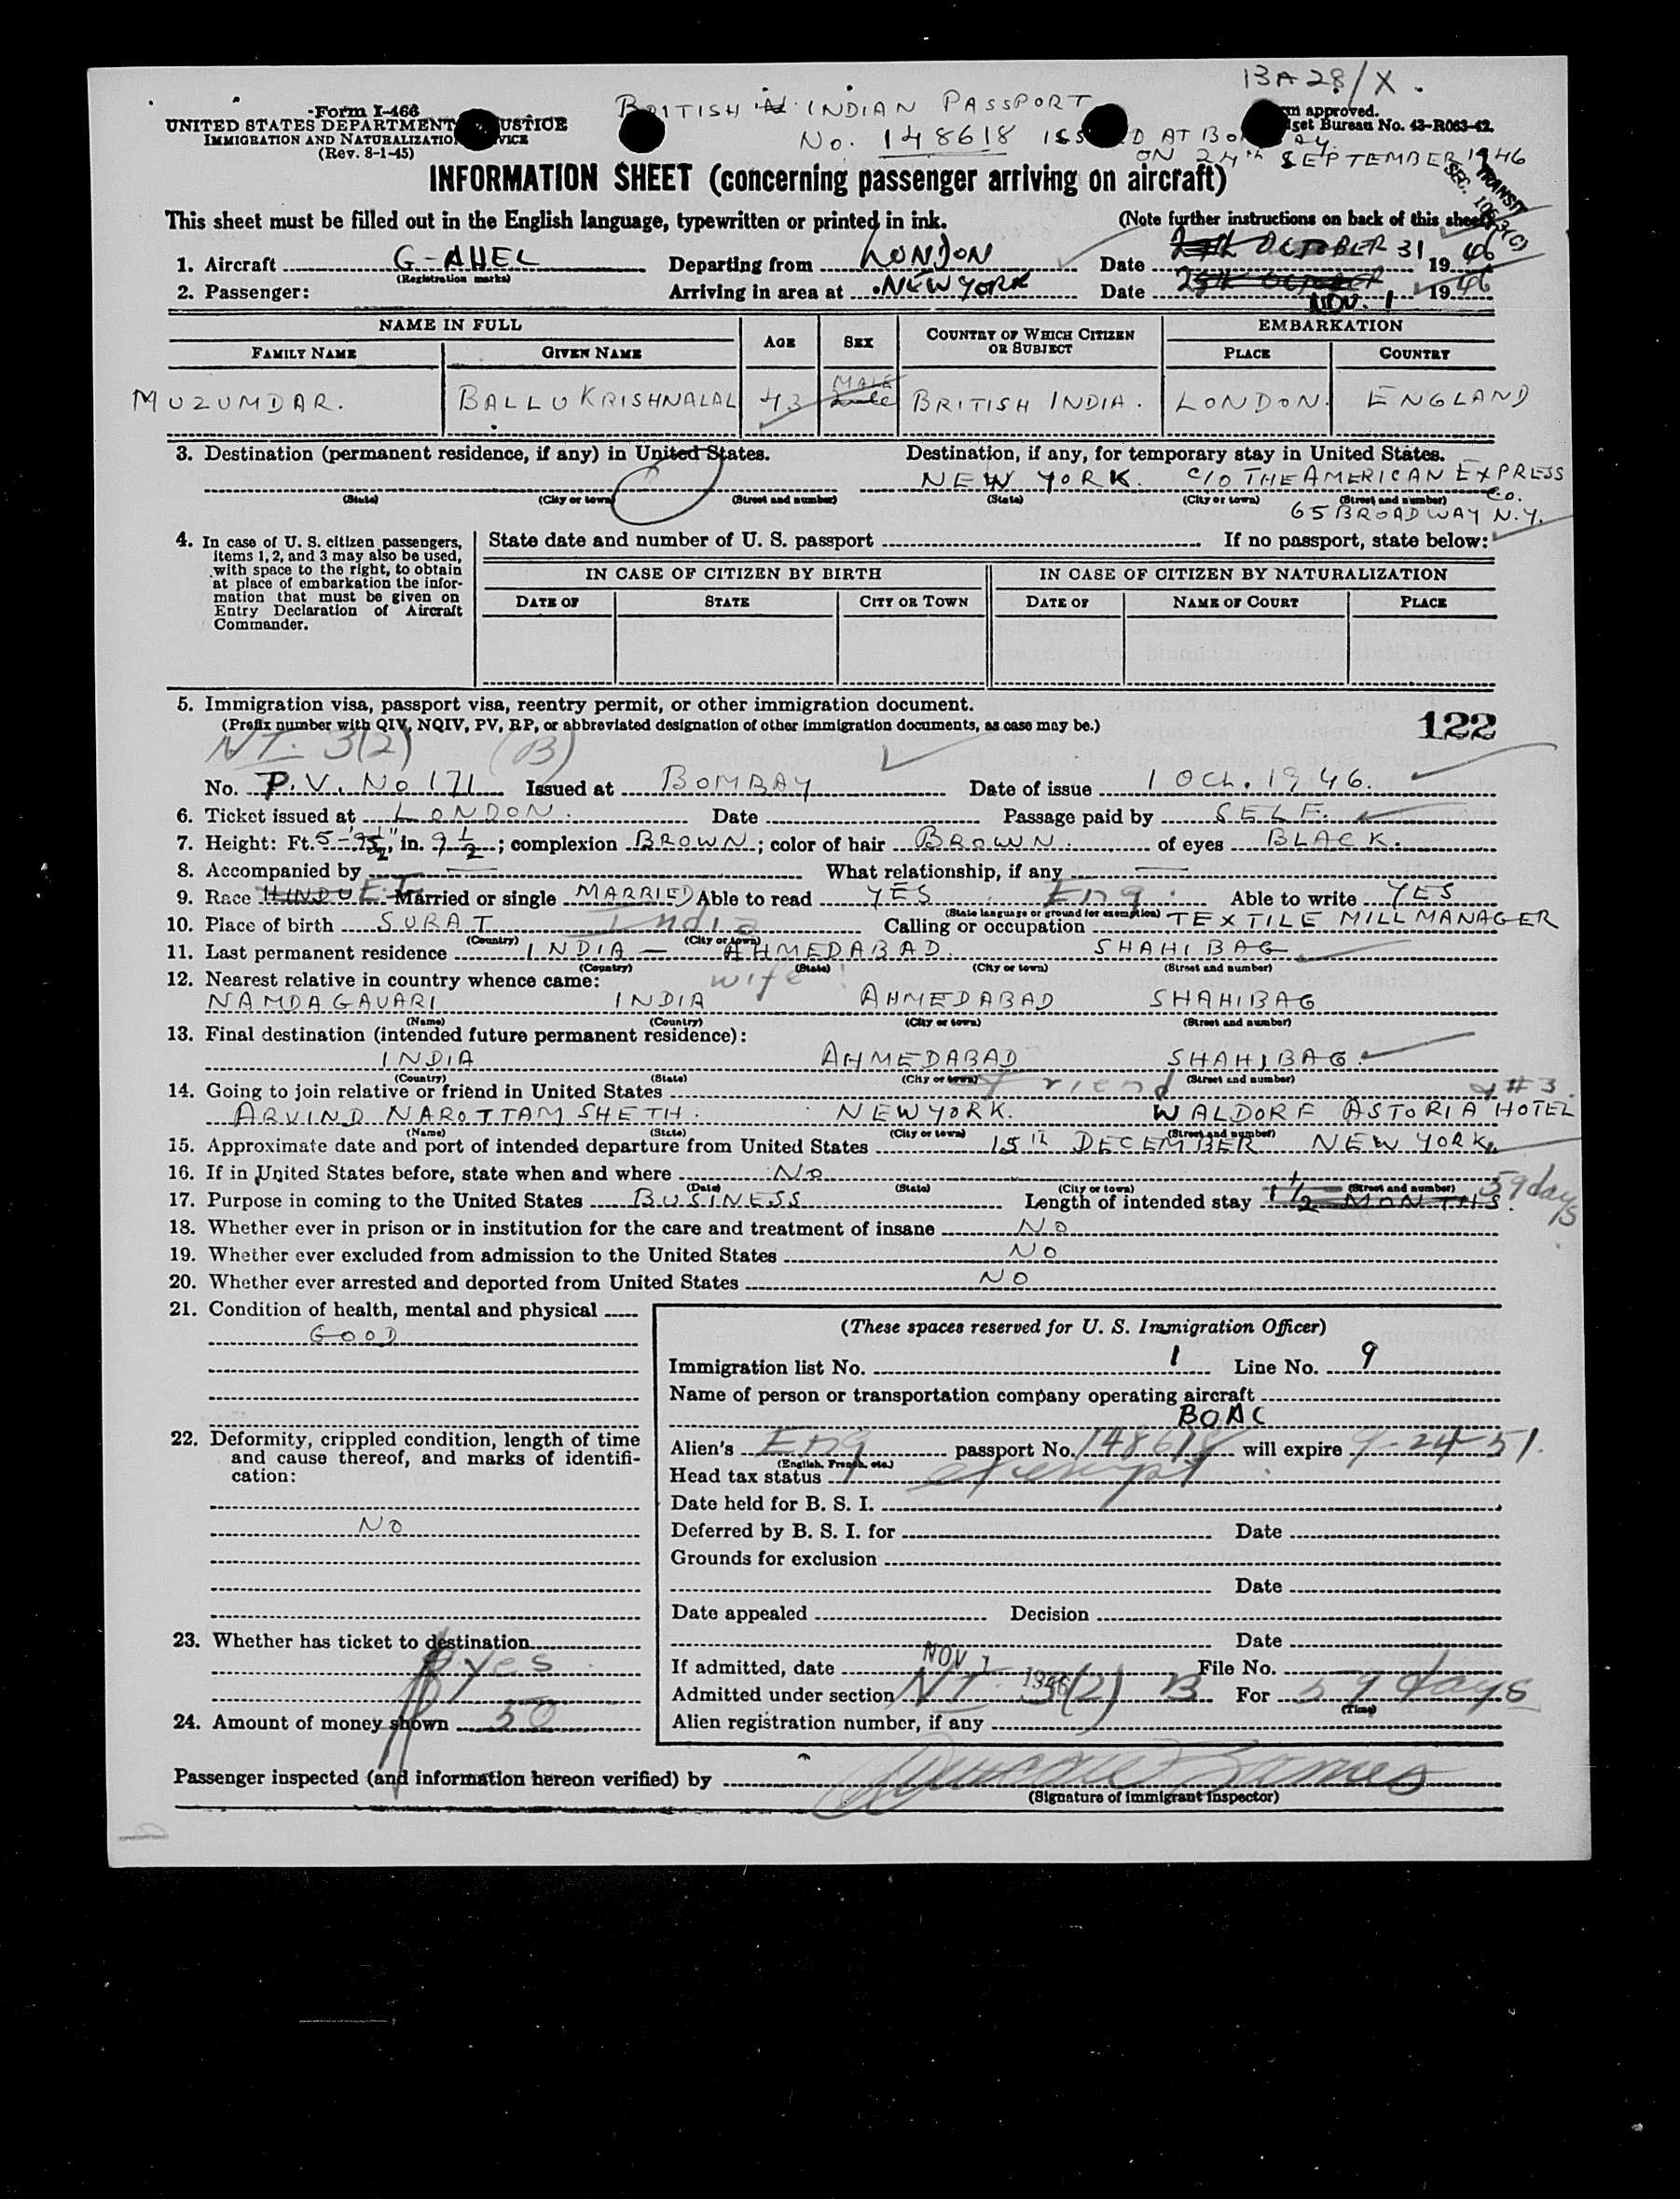 13A 28/X.
Form I-466
UNITED STATES DEPARTMENT USTICE
IMMIGRATION AND NATURALIZATIO VICE
(Rev. 8-1-45)
BRITISH INDIAN PASSPORT
No. 148618 ISS D AT BO AY.
ON 24th SEPTEMBER 1946
m approved.
get Bureau No. 43-R063-42.
TRANSIT
SEC. 3(C)
INFORMATION SHEET (concerning passenger arriving on aircraft)
This sheet must be filled out in the English language, typewritten or printed in ink. (Note further instructions on back of this sheet)
1. Aircraft G-AHEL Departing from LONDON Date OCTOBER 31 1946
(Registration marks)
2. Passenger: Arriving in area at NEW YORK Date 25th OCTOBER NOV. 1 1946
NAME IN FULL AGE SEX COUNTRY OF WHICH CITIZEN OR SUBJECT EMBARKATION
FAMILY NAME GIVEN NAME PLACE COUNTRY
MUZUMDAR. BALLU KRISHNALAL 43 MALE BRITISH INDIA. LONDON. ENGLAND
3. Destination (permanent residence, if any) in United States. Destination, if any, for temporary stay in United States.
NEW YORK. C/O THE AMERICAN EXPRESS Co.
(State) (City or town) (Street and number) (State) (City or town) (Street and number)
65 BROADWAY N.Y.
4. In case of U. S. citizen passengers, items 1, 2, and 3 may also be used, with space to the right, to obtain at place of embarkation the information that must be given on Entry Declaration of Aircraft Commander.
State date and number of U. S. passport If no passport, state below:
IN CASE OF CITIZEN BY BIRTH IN CASE OF CITIZEN BY NATURALIZATION
DATE OF STATE CITY OR TOWN DATE OF NAME OF COURT PLACE
5. Immigration visa, passport visa, reentry permit, or other immigration document.
(Prefix number with QIV, NQIV, PV, RP, or abbreviated designation of other immigration documents, as case may be.)
122
NT. 3(2) (B)
No. P.V. No 171 Issued at BOMBAY Date of issue 1 Oct. 1946.
6. Ticket issued at LONDON. Date Passage paid by SELF.
7. Height: Ft. 5-9½", in. 9½; complexion BROWN; color of hair BROWN. of eyes BLACK.
8. Accompanied by — What relationship, if any —
9. Race HINDU E.I. Married or single MARRIED Able to read YES Eng. Able to write YES
(State language or ground for exemption)
10. Place of birth SURAT India Calling or occupation TEXTILE MILL MANAGER
(Country) (City or town)
11. Last permanent residence INDIA — AHMEDABAD. SHAHIBAG
(Country) (State) (City or town) (Street and number)
12. Nearest relative in country whence came: wife
NAMDAGAVARI INDIA AHMEDABAD SHAHIBAG
(Name) (Country) (City or town) (Street and number)
13. Final destination (intended future permanent residence):
INDIA AHMEDABAD SHAHIBAG.
(Country) (State) (City or town) (Street and number)
14. Going to join relative or friend in United States friend #3
ARVIND NAROTTAM SHETH. NEW YORK. WALDORF ASTORIA HOTEL
(Name) (State) (City or town) (Street and number)
15. Approximate date and port of intended departure from United States 15th DECEMBER NEW YORK.
16. If in United States before, state when and where No
(Date) (State) (City or town) (Street and number)
17. Purpose in coming to the United States BUSINESS Length of intended stay 1½ MONTHS. 59 days
18. Whether ever in prison or in institution for the care and treatment of insane No
19. Whether ever excluded from admission to the United States No
20. Whether ever arrested and deported from United States No
21. Condition of health, mental and physical
GOOD
22. Deformity, crippled condition, length of time and cause thereof, and marks of identification:
No
23. Whether has ticket to destination
yes
24. Amount of money shown 50
(These spaces reserved for U. S. Immigration Officer)
Immigration list No. 1 Line No. 9
Name of person or transportation company operating aircraft
BOAC
Alien's Eng passport No. 148618 will expire 9-24-51.
(English, French, etc.)
Head tax status exempt
Date held for B. S. I.
Deferred by B. S. I. for Date
Grounds for exclusion
Date
Date appealed Decision
Date
If admitted, date NOV 1 1946 File No.
Admitted under section NT. 3(2) B For 59 days
(Time)
Alien registration number, if any
Passenger inspected (and information hereon verified) by
(Signature of immigrant inspector)